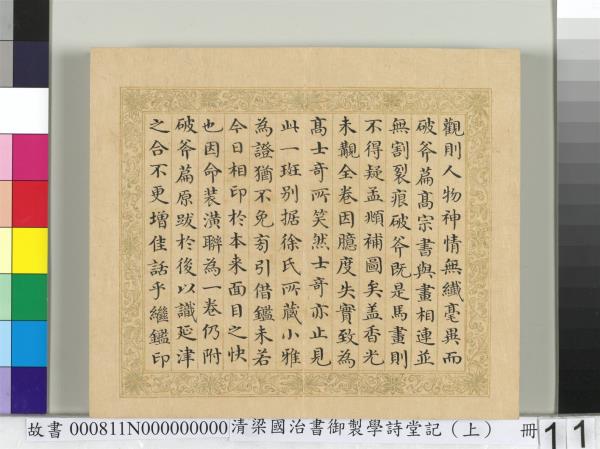 觀則人物神情無纖毫異而
破斧篇高宗書與畫相連並
無割裂痕破斧既是馬畫則
不得疑孟頫補圖矣蓋香光
未觀全卷因臆度失實致為
高士奇所笑然士奇亦止見
此一斑别据徐氏所藏小雅
為證猶不免旁引借鑑未若
今日相印於本来面目之快
也因命装潢聨為一卷仍附
破斧篇原跋於後以識延津
之合不更增佳話乎繼鑑印
故書 000811N000000000 清梁國治書御製學詩堂記（上） 冊 11